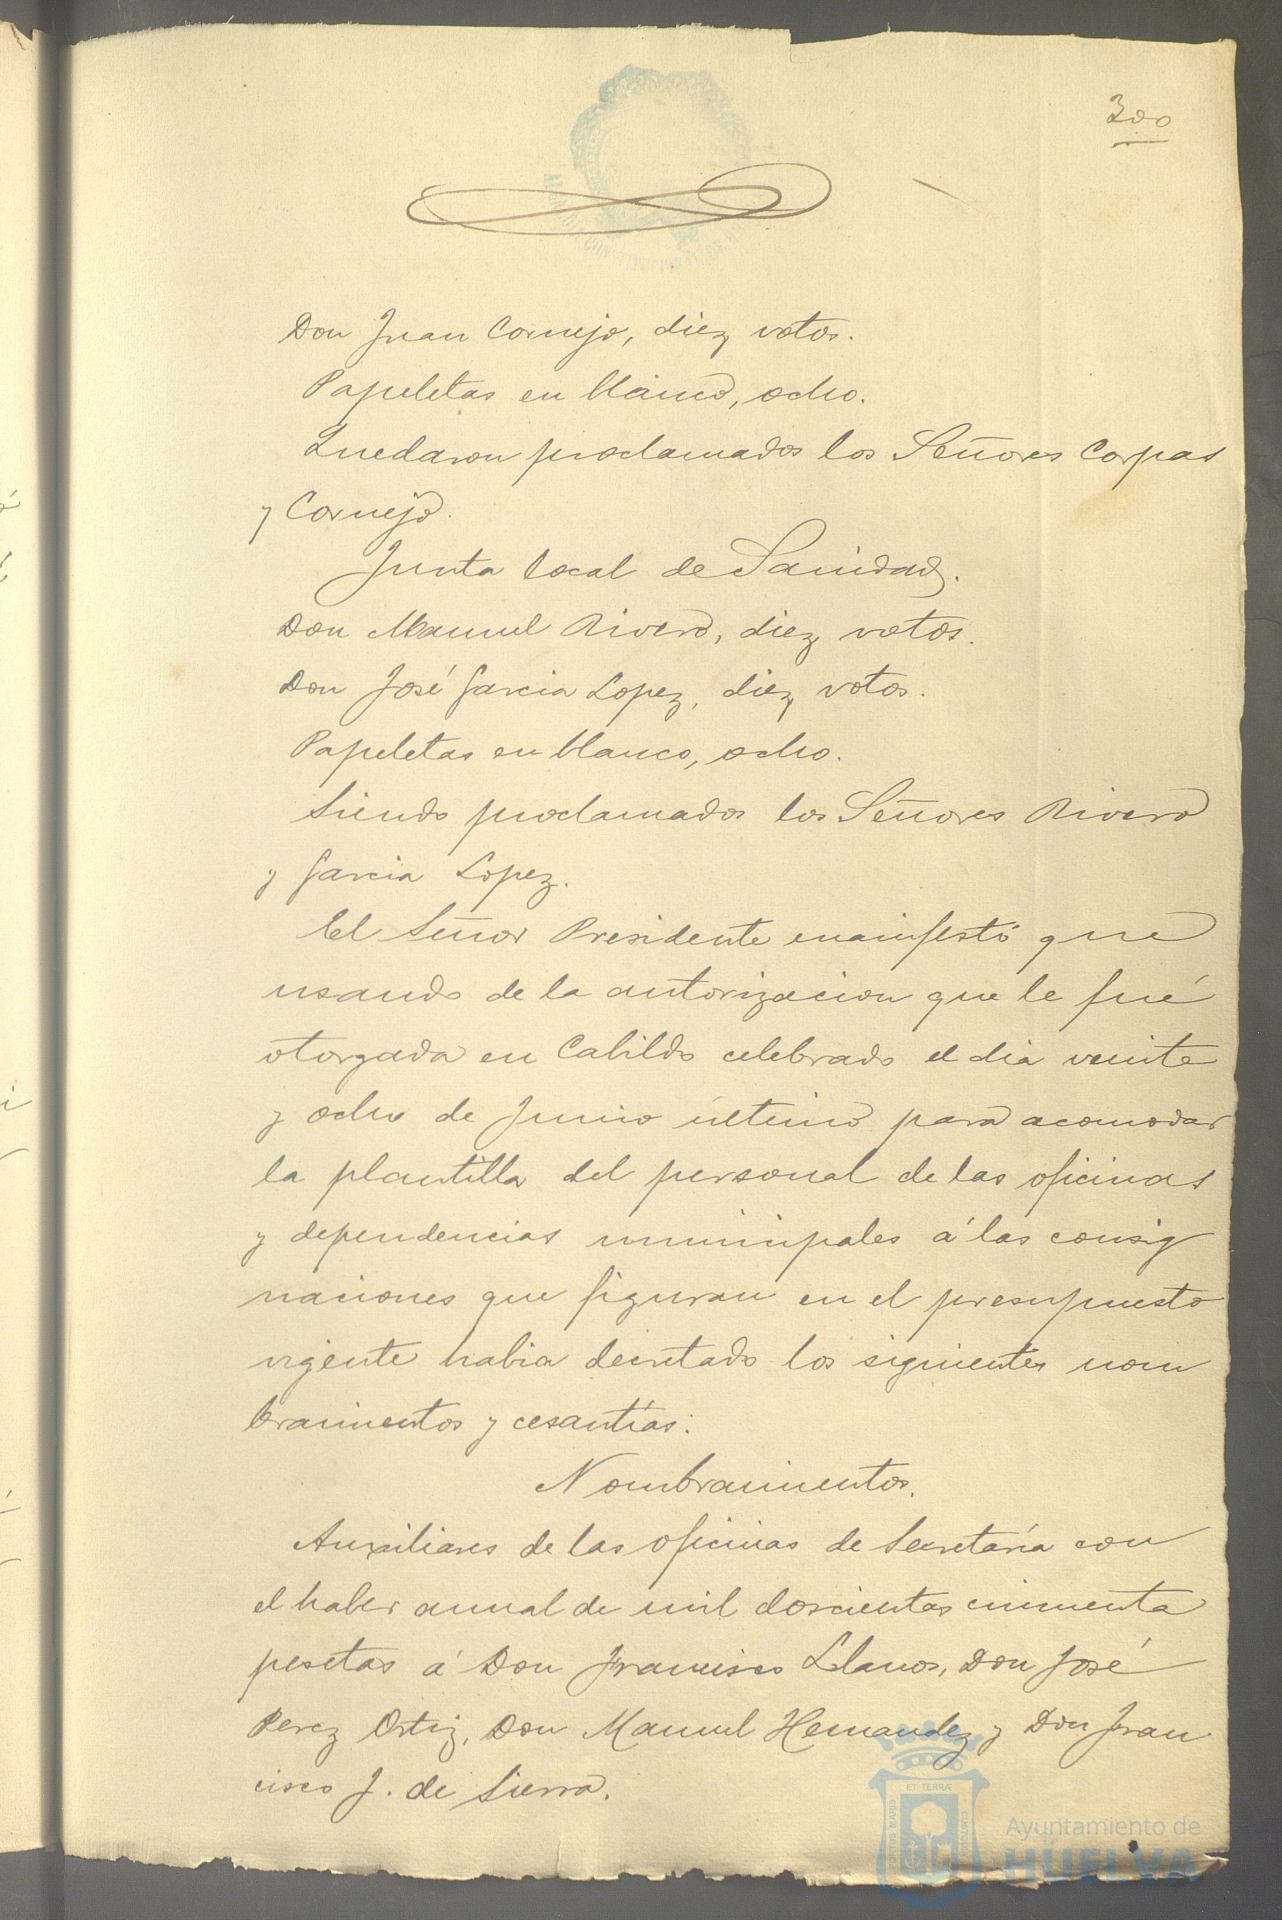 300
Don Juan Cornejo, diez votos.
Papeletas en blanco, ocho.
Quedaron proclamados los Señores Corpas
y Cornejo.
Junta local de Sanidad.
Don Manuel Rivero, diez votos.
Don José Garcia Lopez, diez votos.
Papeletas en blanco, ocho.
Siendo proclamados los Señores Rivero
y Garcia Lopez.
El Señor Presidente manifestó que
usando de la autorizacion que le fué
otorgada en Cabildo celebrado el dia veinte
y ocho de Junio último para acomodar
la plantilla del personal de las oficinas
y dependencias municipales á las consig
naciones que figuran en el presupuesto
vigente habia decretado los siguientes nom
bramientos y cesantías:
Nombramientos.
Auxiliares de las oficinas de Secretaría con
el haber anual de mil doscientas cincuenta
pesetas á Don Francisco Llanos, Don José
Perez Ortiz, Don Manuel Hernandez y Don Fran
cisco J. de Sierra.
ET TERRÆ
PORTUS MARIS
CUSTODIA
Ayuntamiento de
HUELVA